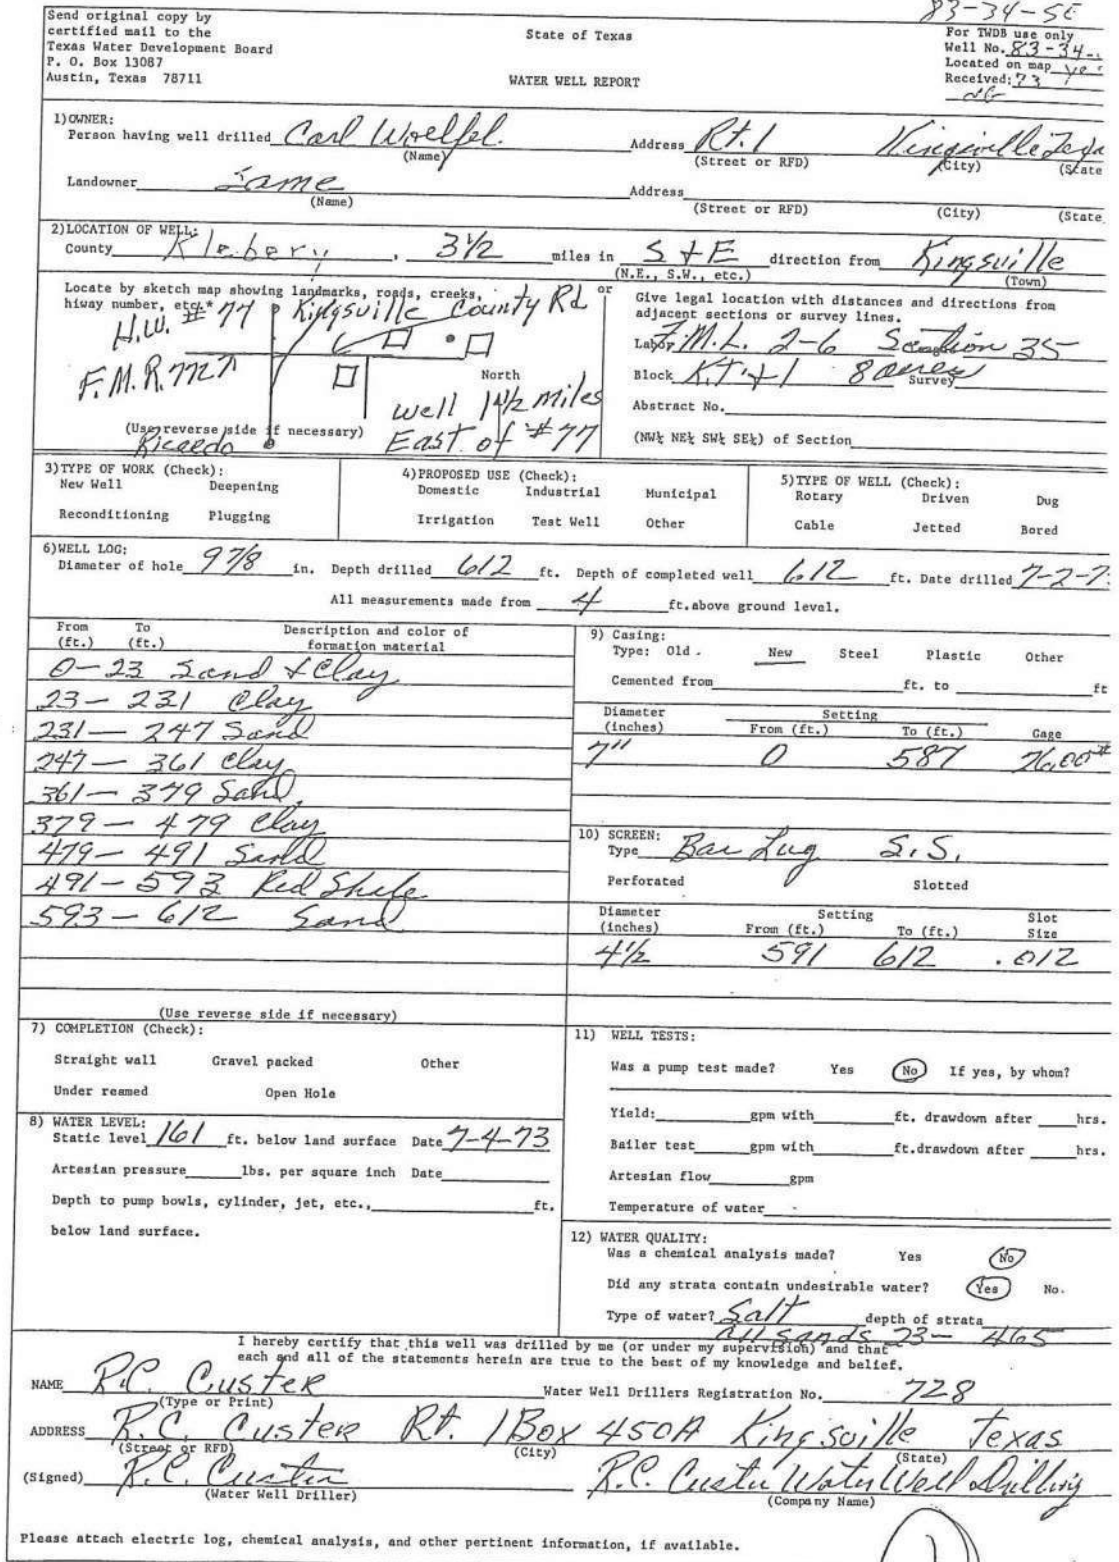 83-34-SE
Send original copy by
certified mail to the
Texas Water Development Board
P. O. Box 13087
Austin, Texas 78711
State of Texas
WATER WELL REPORT
For TWDB use only
Well No. 83-34-
Located on map yes
Received: 73
1)OWNER:
Person having well drilled Carl Woelfel. Address Rt. 1 Kingsville Texa
(Name) (Street or RFD) (City) (State
Landowner Same Address
(Name) (Street or RFD) (City) (State.
2)LOCATION OF WELL:
County Klebery, 3 1/2 miles in S & E direction from Kingsville
(N.E., S.W., etc.) (Town)
Locate by sketch map showing landmarks, roads, creeks,
hiway number, etc.*
H.W. #77 Kingsville County Rd
F.M.R. 772
North
well 1 1/2 miles
East of #77
(Use reverse side if necessary)
Ricaedo
or
Give legal location with distances and directions from
adjacent sections or survey lines.
Labor F.M.L. 2-6 Section 35
Block K.T. & I 8 acres Survey
Abstract No.
(NW¼ NE¼ SW¼ SE¼) of Section
3)TYPE OF WORK (Check):
New Well Deepening
Reconditioning Plugging
4)PROPOSED USE (Check):
Domestic Industrial Municipal
Irrigation Test Well Other
5)TYPE OF WELL (Check):
Rotary Driven Dug
Cable Jetted Bored
6)WELL LOG:
Diameter of hole 9 7/8 in. Depth drilled 612 ft. Depth of completed well 612 ft. Date drilled 7-2-7
All measurements made from 4 ft.above ground level.
From To Description and color of
(ft.) (ft.) formation material
0-23 Sand & Clay
23-231 Clay
231-247 Sand
247-361 Clay
361-379 Sand
379-479 Clay
479-491 Sand
491-593 Red Shale
593-612 Sand
(Use reverse side if necessary)
9) Casing:
Type: Old. New Steel Plastic Other
Cemented from ft. to ft
Diameter Setting
(inches) From (ft.) To (ft.) Gage
7" 0 587 26.00#
10) SCREEN:
Type Bar Lug S.S.
Perforated Slotted
Diameter Setting Slot
(inches) From (ft.) To (ft.) Size
4 1/2 591 612 .012
7) COMPLETION (Check):
Straight wall Gravel packed Other
Under reamed Open Hole
8) WATER LEVEL:
Static level 161 ft. below land surface Date 7-4-73
Artesian pressure lbs. per square inch Date
Depth to pump bowls, cylinder, jet, etc., ft.
below land surface.
11) WELL TESTS:
Was a pump test made? Yes No If yes, by whom?
Yield: gpm with ft. drawdown after hrs.
Bailer test gpm with ft.drawdown after hrs.
Artesian flow gpm
Temperature of water
12) WATER QUALITY:
Was a chemical analysis made? Yes No
Did any strata contain undesirable water? Yes No.
Type of water? Salt depth of strata
all sands 23-465
I hereby certify that this well was drilled by me (or under my supervision) and that
each and all of the statements herein are true to the best of my knowledge and belief.
NAME R.C. Custer Water Well Drillers Registration No. 728
(Type or Print)
ADDRESS R.C. Custer Rt. 1 Box 450A Kingsville Texas
(Street or RFD) (City) (State)
(Signed) R.C. Custer R.C. Custer Water Well Drilling
(Water Well Driller) (Company Name)
Please attach electric log, chemical analysis, and other pertinent information, if available.